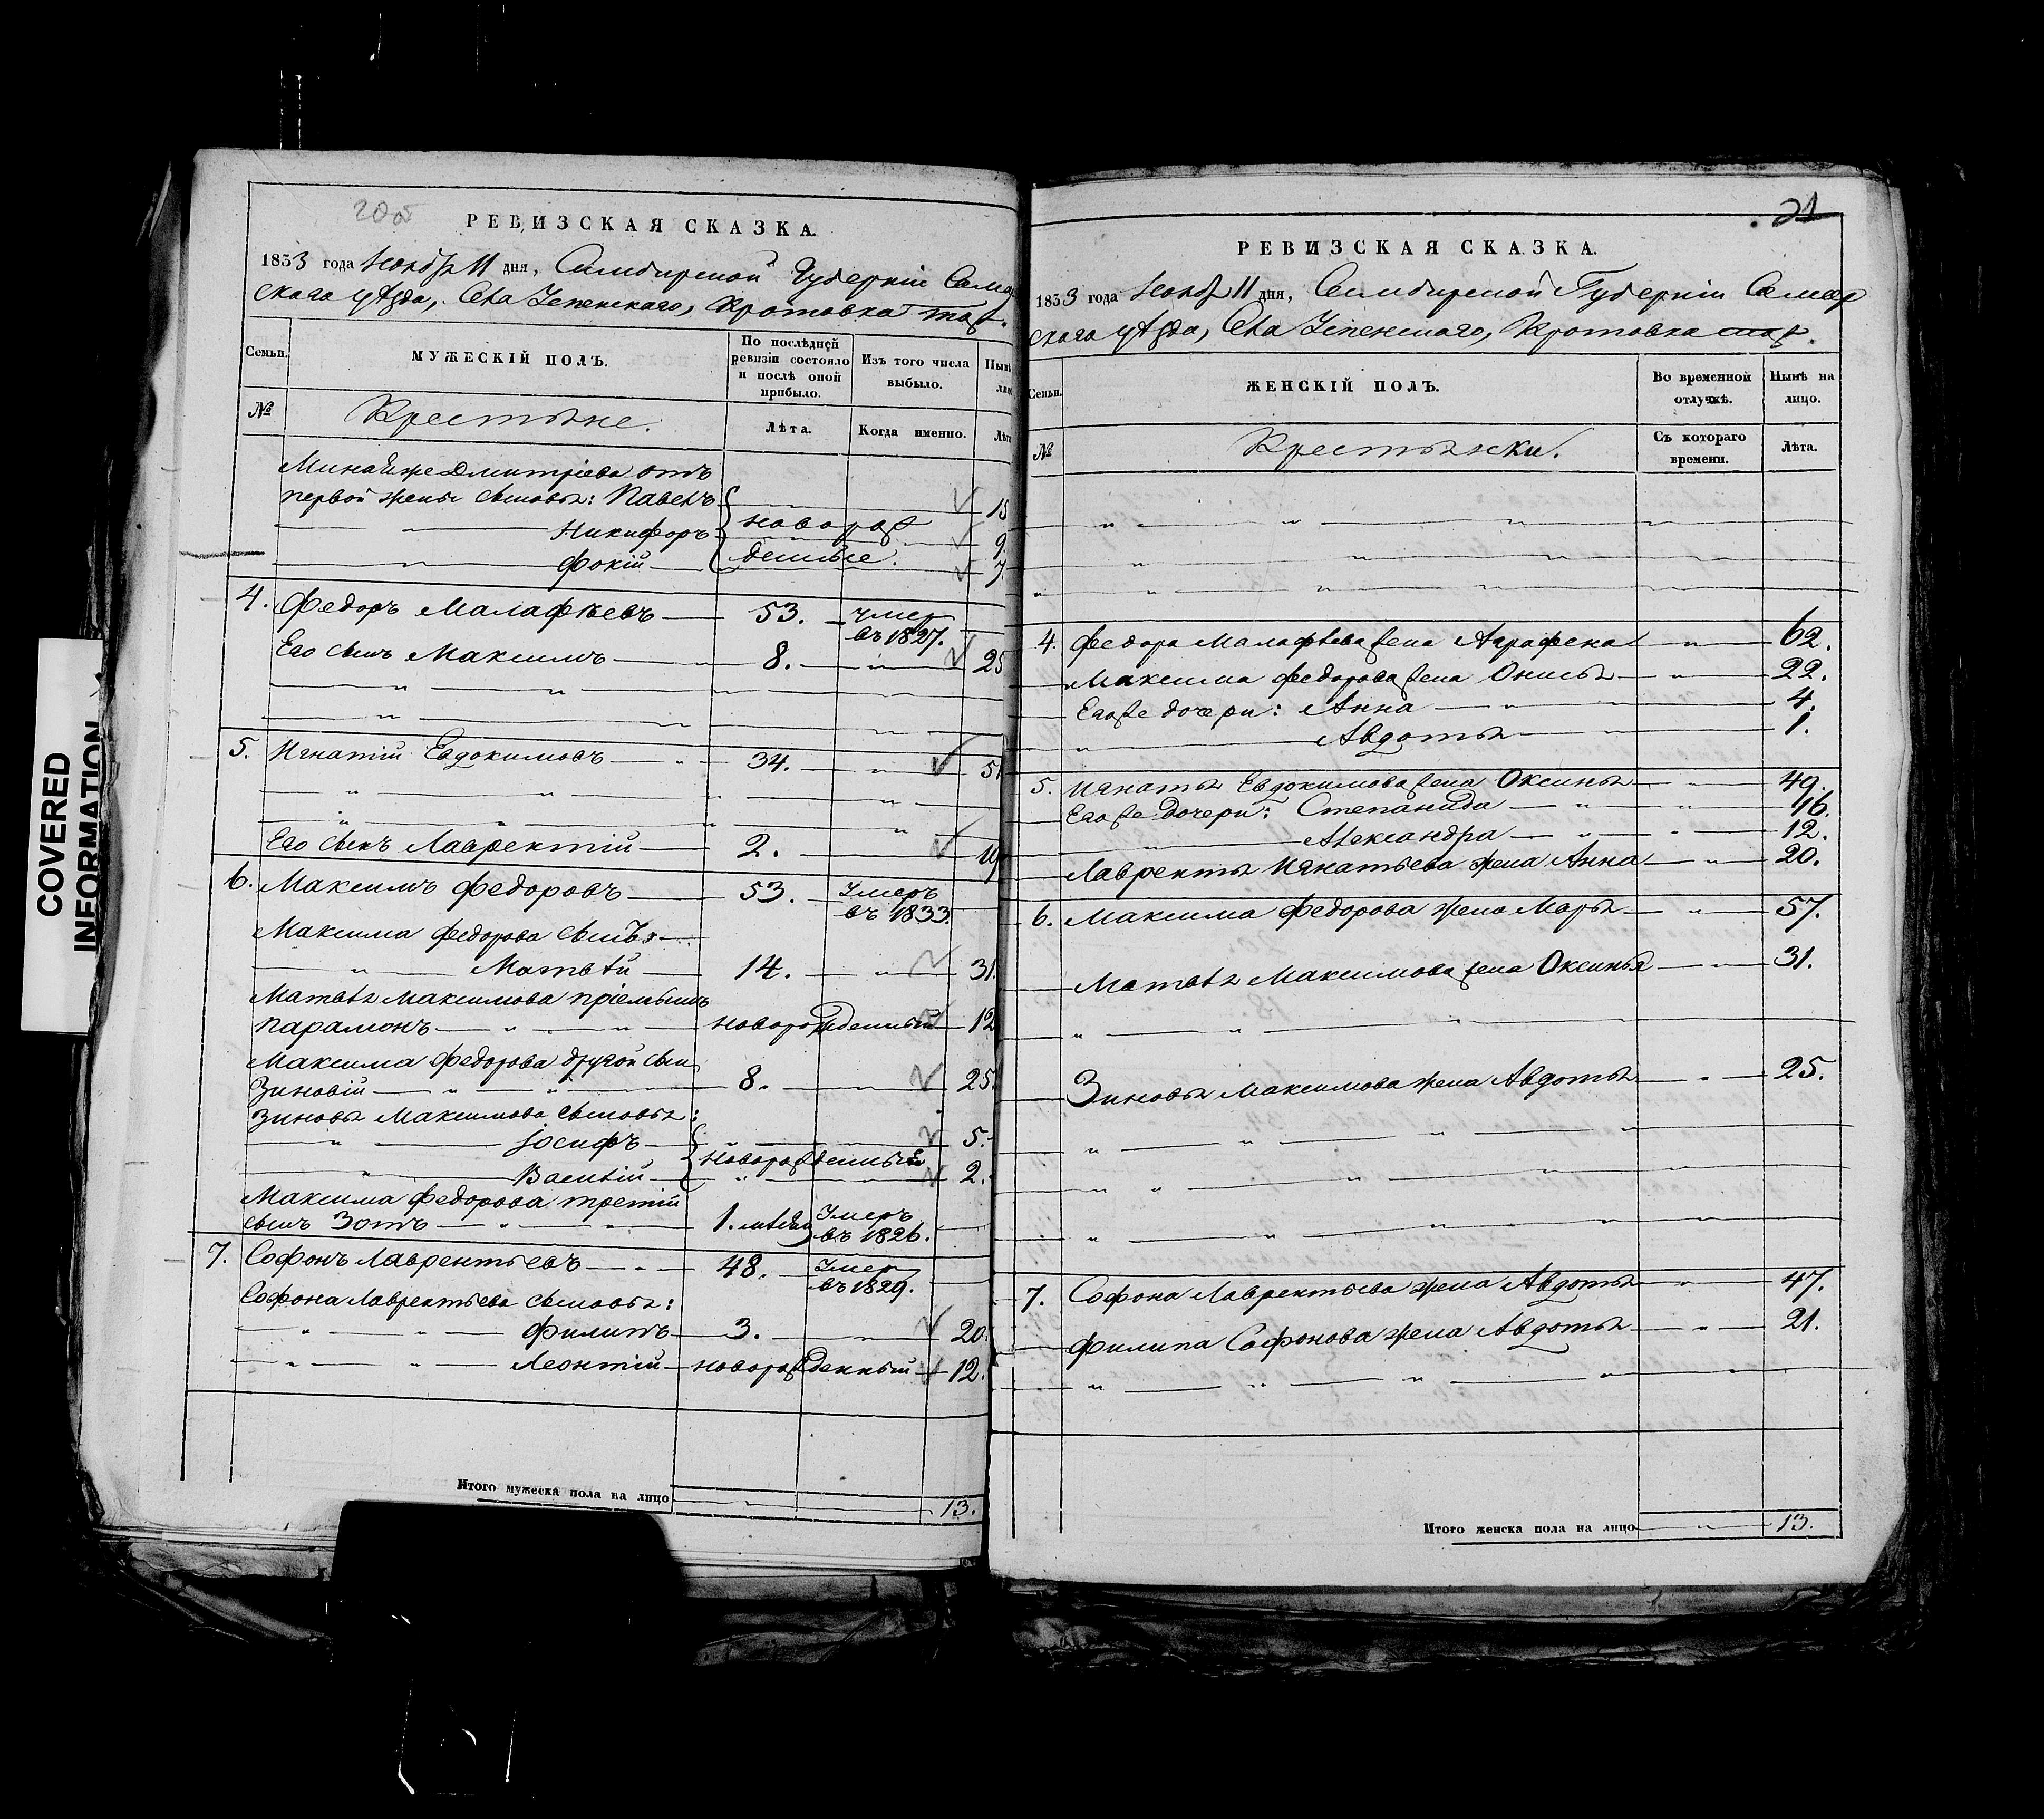 20об
РЕВИЗСКАЯ СКАЗКА.
1833 года Ноября 11 дня, Симбирской Губерніи Сама
скаго уѣзда, Села Успенскаго, Кротовка тож.
Семьи.
МУЖЕСКІЙ ПОЛЪ.
По послѣдней ревизіи состояло и послѣ оной прибыло.
Изъ того числа выбыло.
Нынѣ
№
Крестьяне.
Лѣта.
Когда именно.
Лѣта
Миная же Дмитріева отъ
первой жены сыновья: Павелъ 15
Никифоръ новорож 9.
Фокій денные. 7.
4. Федоръ Малафѣевъ 53. умер въ 1827.
Его сынъ Максимъ 8. 25
5. Игнатій Евдокимовъ 34. 51
Его сынъ Лаврентій 2. 19
6. Максимъ Федоровъ 53. Умеръ въ 1833.
Максима Федорова сынъ
Матвѣй 14. 31.
Матвѣя Максимова пріемышъ
Парамонъ новорожденный 12
Максима Федорова другой сын
Зиновій 8. 25.
Зиновья Максимова сыновья:
Іосифъ 5.
новорожденный
Василій 2.
Максима Федорова третій
сынъ Зотъ 1. мѣсяц Умеръ въ 1826.
7. Софонъ Лаврентьевъ 48. Умер въ 1829.
Софона Лаврентьева сыновья:
Филипъ 3. 20.
Леонтій новорожденный 12.
Итого мужеска пола на лицо 13.
21
РЕВИЗСКАЯ СКАЗКА.
1833 года Ноября 11 дня, Симбирской Губерніи Самар
скаго уѣзда, Села Успенскаго, Кротовка тож.
Семьи.
ЖЕНСКІЙ ПОЛЪ.
Во временной отлучкѣ.
Нынѣ на лицо.
№
Крестьянки.
Съ котораго времени.
Лѣта.
4. Федора Малафѣева жена Аграфена 62.
Максима Федорова жена Онисья 22.
Его же дочери: Анна 4.
Авдотья 1.
5. Игнатья Евдокимова жена Оксинья 49.
Его же дочери: Степанида 16.
Александра 12.
Лаврентья Игнатьева жена Анна 20.
6. Максима Федорова жена Марья 57.
Матвѣя Максимова жена Оксинья 31.
Зиновья Максимова жена Авдотья 25.
7. Софона Лаврентьева жена Авдотья 47.
Филипа Софонова жена Авдотья 21.
Итого женска пола на лицо 13.
COVERED
INFORMATION